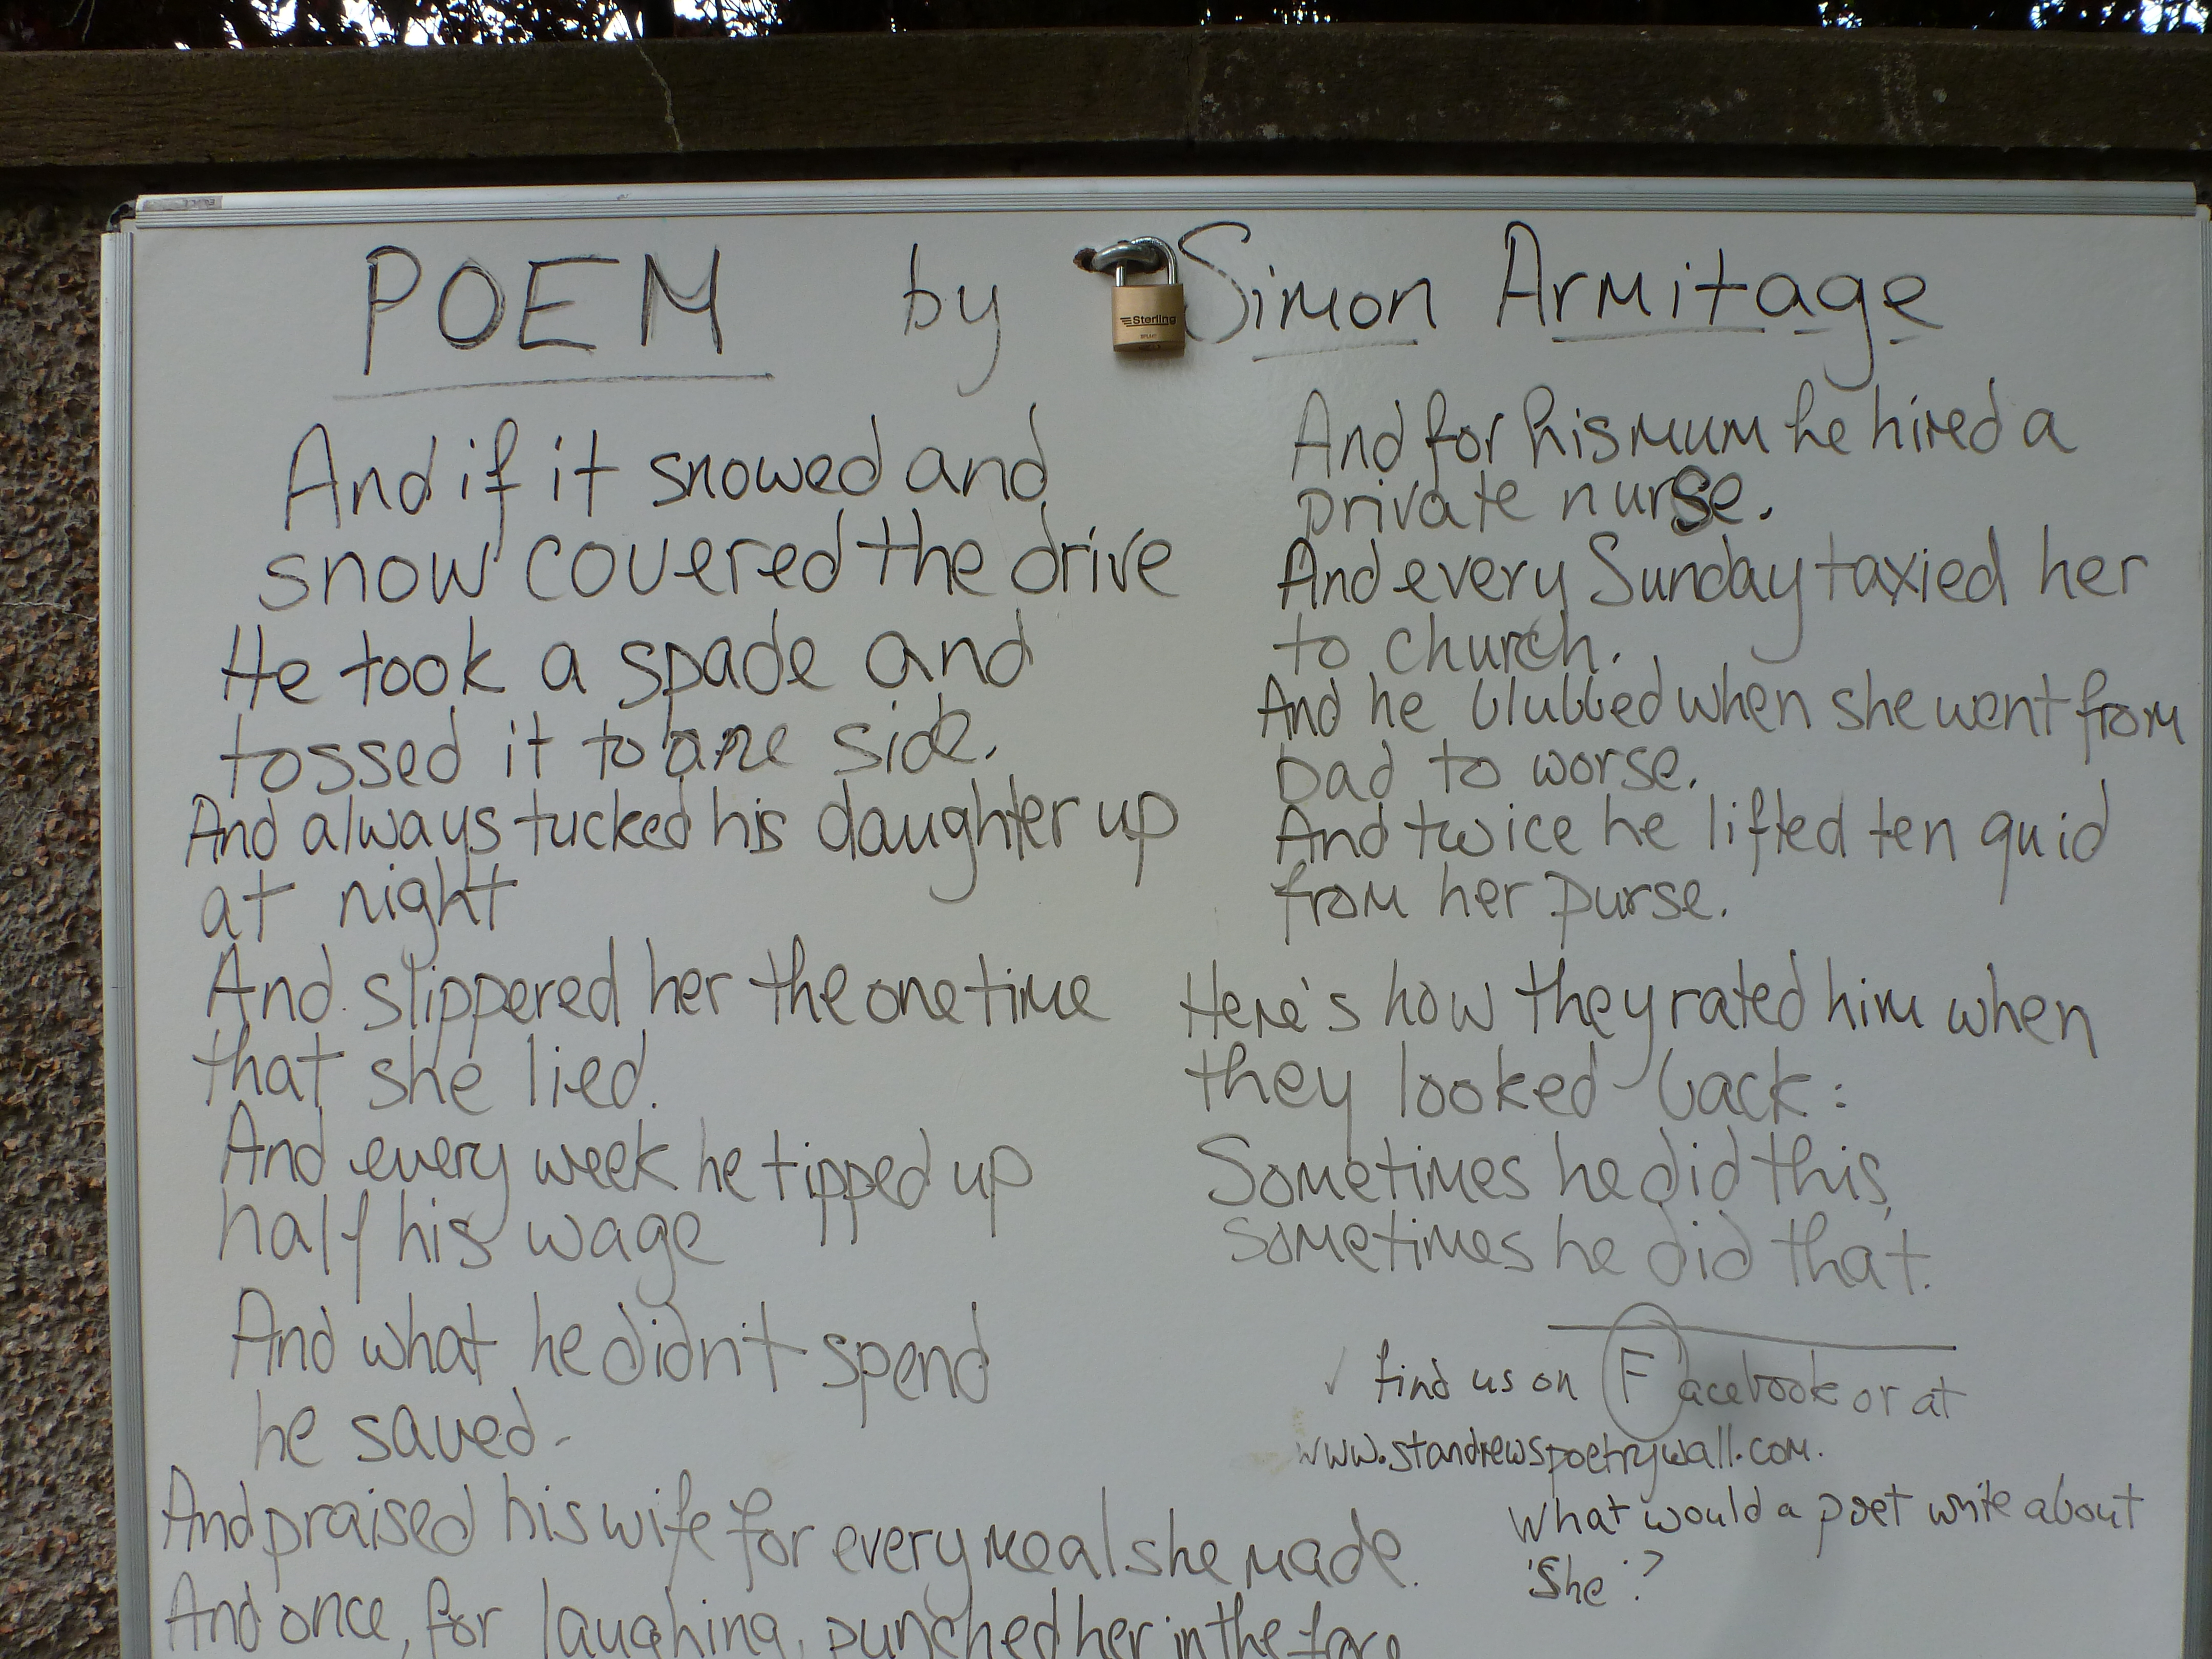 POEM by Simon Armitage
Sterling
And if it snowed and
snow covered the drive
He took a spade and
tossed it to one side.
And always tucked his daughter up
at night
And slippered her the one time
that she lied.
And every week he tipped up
half his wage
And what he didn't spend
he saved.
And praised his wife for every meal she made.
And once, for laughing, punched her in the face
And for his mum he hired a
private nurse.
And every Sunday taxied her
to church.
And he blubbed when she went from
bad to worse.
And twice he lifted ten quid
from her purse.
Here's how they rated him when
they looked back:
Sometimes he did this,
sometimes he did that.
find us on Facebook or at
www.standrewspoetrywall.com.
What would a poet write about
'She'?